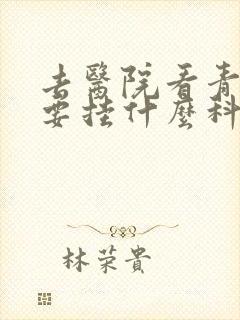 去醫院看青
要挂什麼科
林荣貴